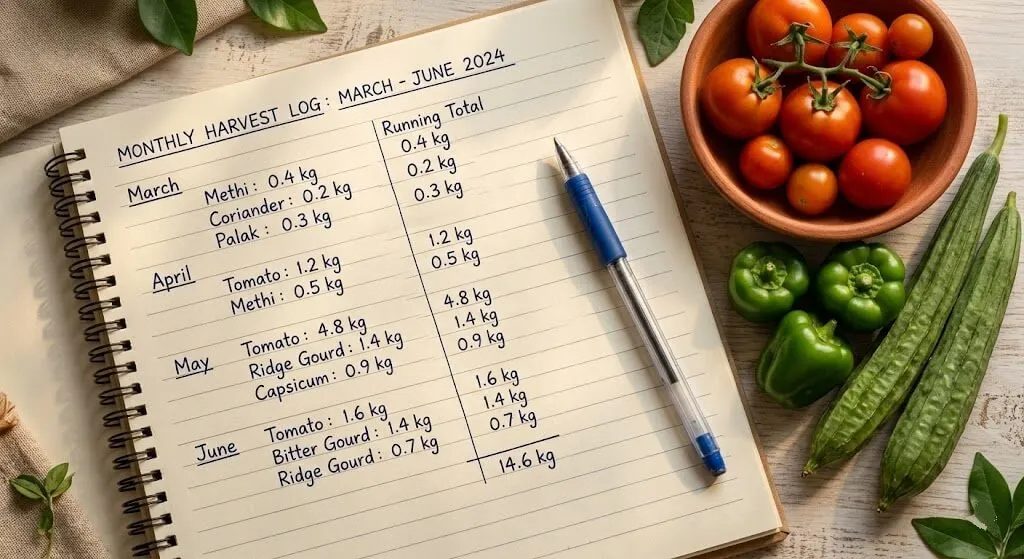 MONTHLY HARVEST LOG: MARCH - JUNE 2024
Running Total
March
Methi: 0.4 kg 0.4 kg
Coriander: 0.2 kg 0.2 kg
Palak: 0.3 kg 0.3 kg
April
Tomato: 1.2 kg 1.2 kg
Methi: 0.5 kg 0.5 kg
May
Tomato: 4.8 kg 4.8 kg
Ridge Gourd: 1.4 kg 1.4 kg
Capsicum: 0.9 kg 0.9 kg
June
Tomato: 1.6 kg 1.6 kg
Bitter Gourd: 1.4 kg 1.4 kg
Ridge Gourd: 0.7 kg 0.7 kg
14.6 kg